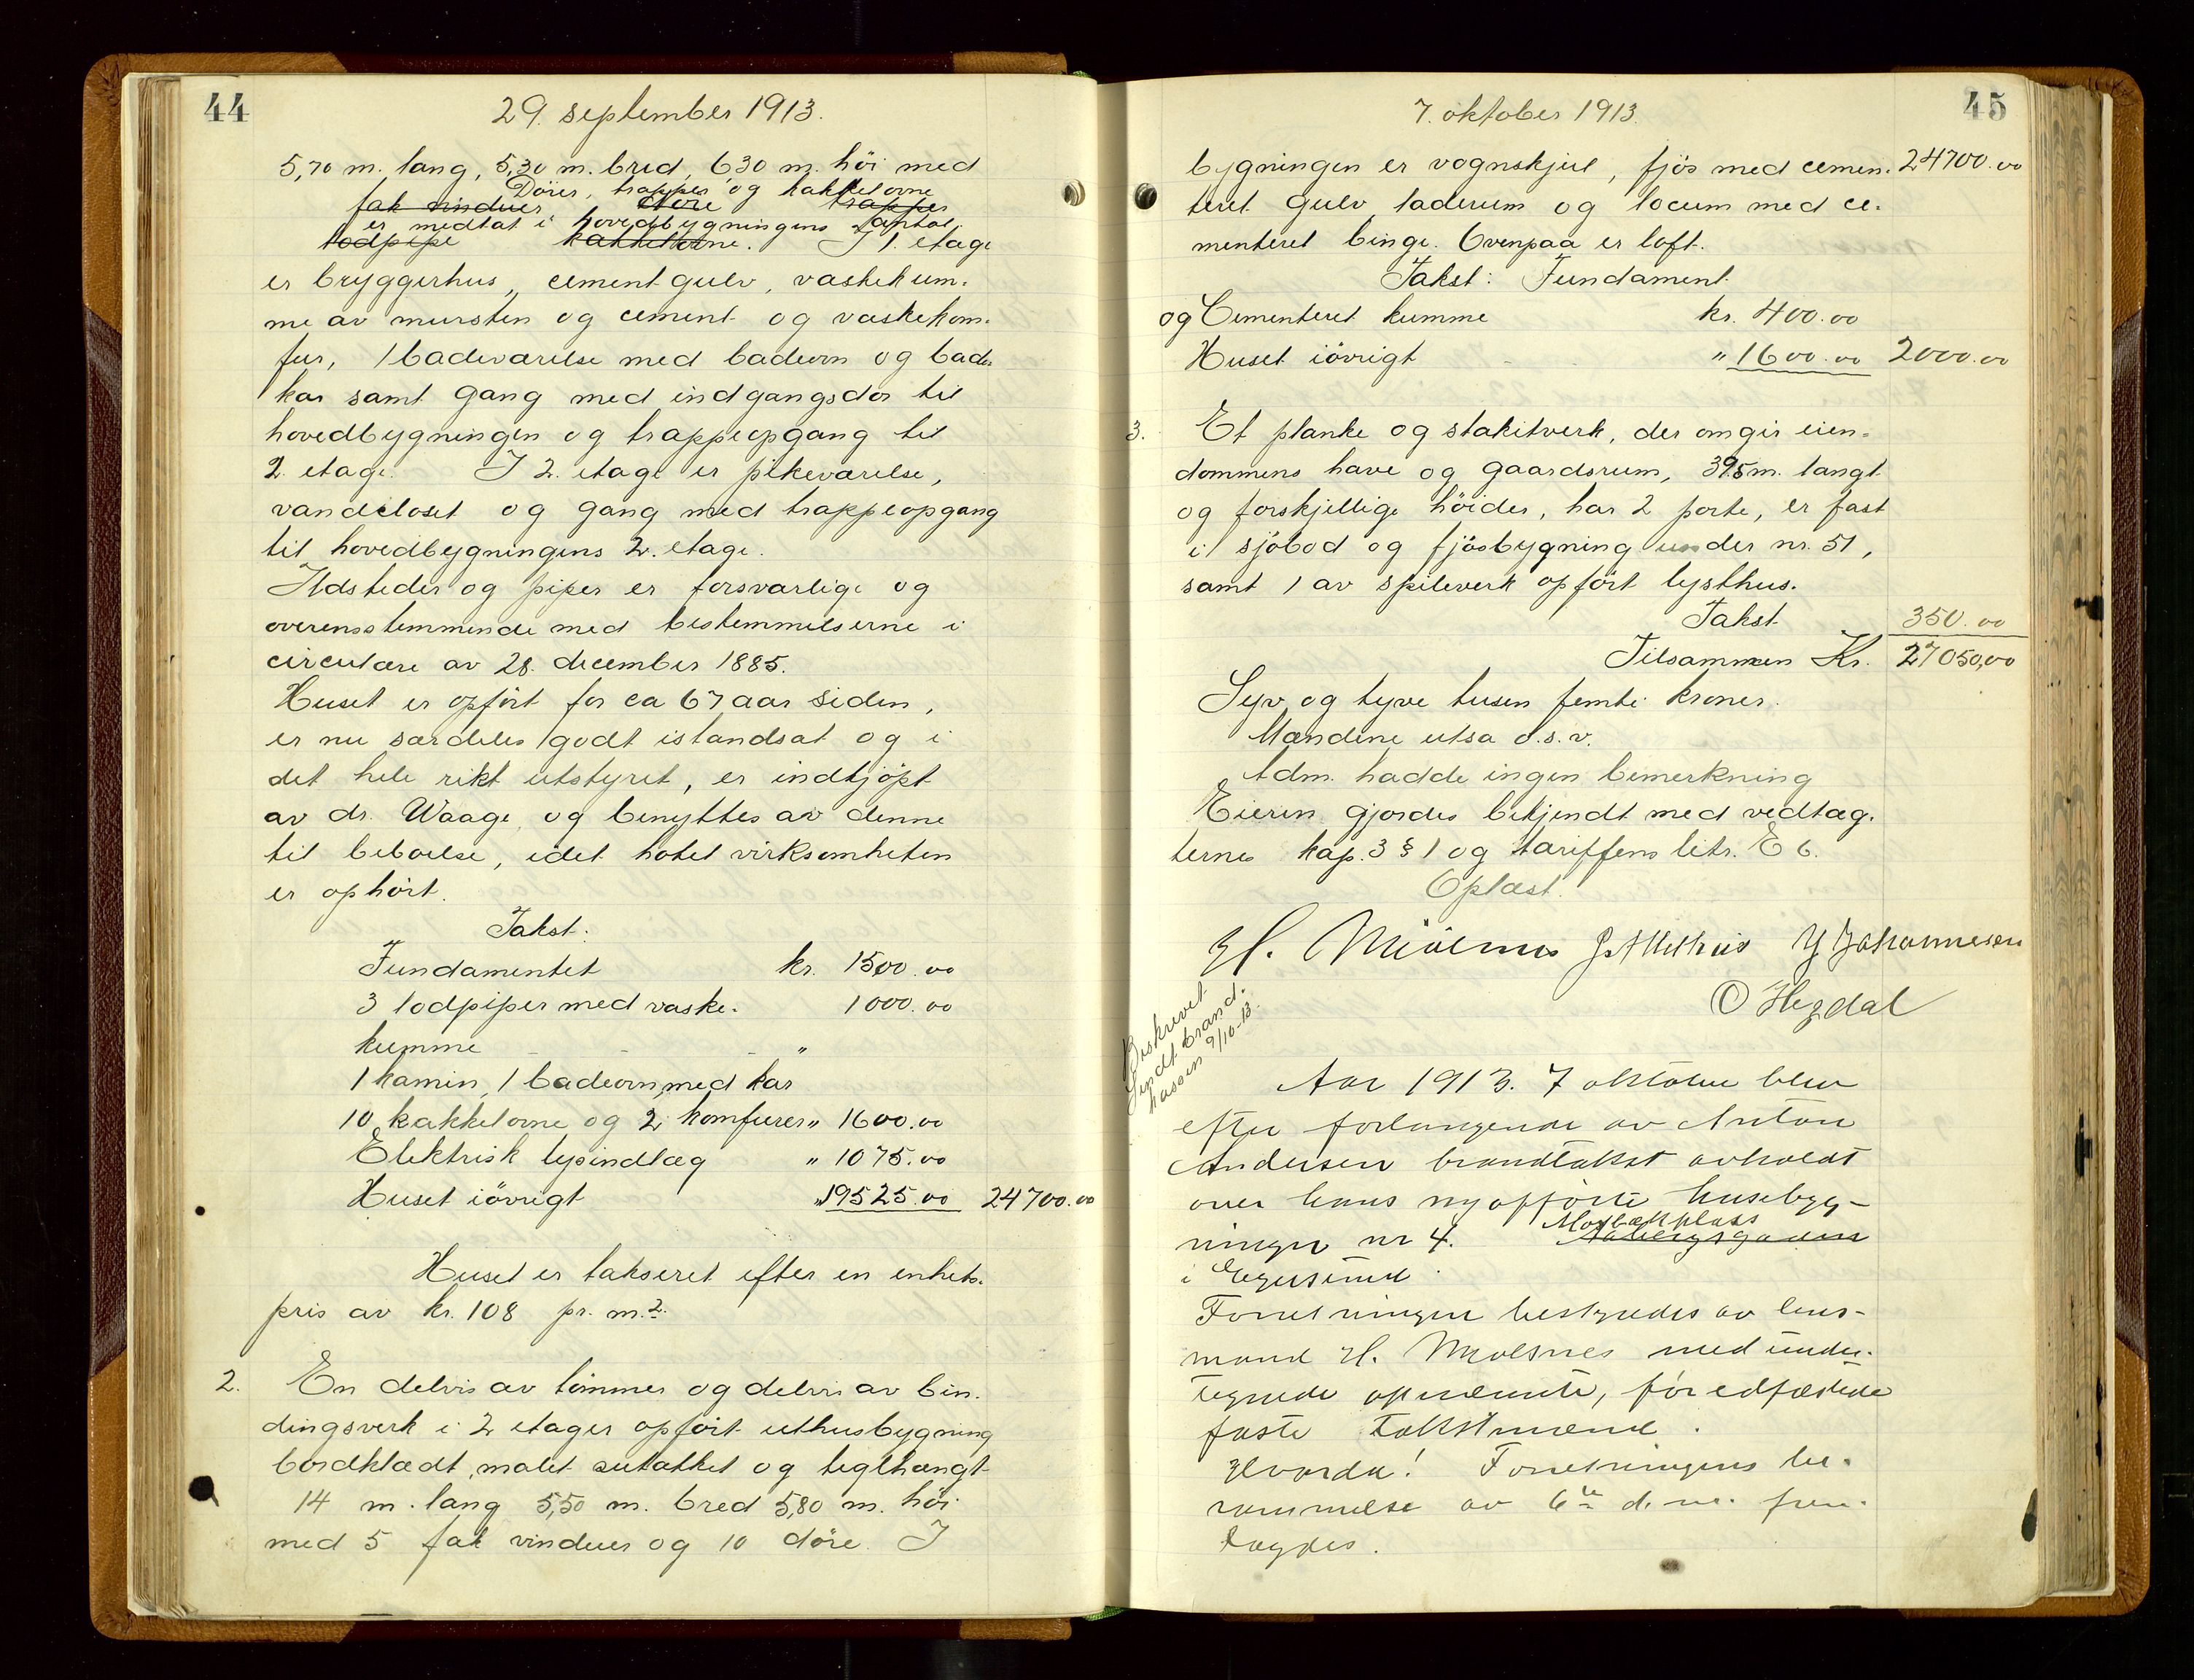 44
29. september 1913.
5,70 m. lang, 5,30 m. bred, 6,30 m. höi med
Dörer, trapper og kakkelovne
fak vinduer döre trapper
er medtat i hovedbygningens antal
lodpipe kakkelovne. I 1. etage
er bryggerhus, cementgulv, vaskekum-
me av mursten og cement og vaskekom-
fur, 1 badeværelse med badeovn og bade-
kar samt gang med indgangsdör til
hovedbygningen og trappeopgang til
2. etage. I 2. etage er pikeværelse,
vandcloset og gang med trappeopgang
til hovedbygningens 2. etage.
Ildsteder og piper er forsvarlige og
overensstemmende med bestemmelserne i
circulære av 28. december 1885.
Huset er opført for ca 67 aar siden,
er nu særdeles godt istandsat og i
det hele rikt utstyret, er indkjöpt
av dr. Waage, og benyttes av denne
til beboelse, idet hotelvirksomheten
er ophört.
Takst:
Fundamentet kr. 1500.00
3 lodpiper med vaske- 1000.00
kumme "
1 kamin, 1 badeovn, med kar
10 kakkelovne og 2 komfurer " 1600.00
Elektrisk lysindlæg " 1075.00
Huset iövrigt " 19525.00 24700.00
Huset er takseret efter en enhets-
pris av kr. 108 pr. m.2.
2. En delvis av tömmer og delvis av bin-
dingsverk i 2 etager opfört uthusbygning
bordklædt, malet sutakket og teglhængt
14 m. lang 5,50 m. bred 5,80 m. höi
med 5 fak vinduer og 10 döre. I
45
7. oktober 1913
bygningen er vognskjul, fjös med cemen- 24700.00
teret gulv, laderum og locum med ce-
menteret binge. Ovenpaa er loft.
Takst: Fundament
og Cementeret kumme kr. 400.00
Huset iövrigt " 1600.00 2000.00
3. Et planke og stakitverk, der omgir eien-
dommens have og gaardsrum, 395 m. langt
og forskjellige höider, har 2 porte, er fast
i sjöbod og fjösbygning under nr. 51,
samt 1 av spileverk opfört lysthus.
Takst 350.00
Tilsammen Kr. 27050,00
Syv og tyve tusen femti kroner.
Mændene utsa o.s.v.
Adm. hadde ingen bemerkning
Eieren gjordes bekjendt med vedtæg-
ternes kap. 3 § 1 og tariffens litr. E 6.
Oplæst.
H. Mjölsnes Y Johannesen
O Hegdal
Beskrevet
sendt brand-
kassen 9/10-13.
Aar 1913. 7 oktober blev
efter forlangende av Anton
Andersen brandtakst avholdt
over hans nyopförte husebyg-
ninger nr 4. Mosbækplass
i Egersund.
Forretningen bestyredes av lens-
mand H. Mjølsnes med under-
tegnede opnævnte, før edfæstede
faste takstmænd.
Hvorda! Forretningens be-
rammelse av 6te d. m. frem-
lagdes.